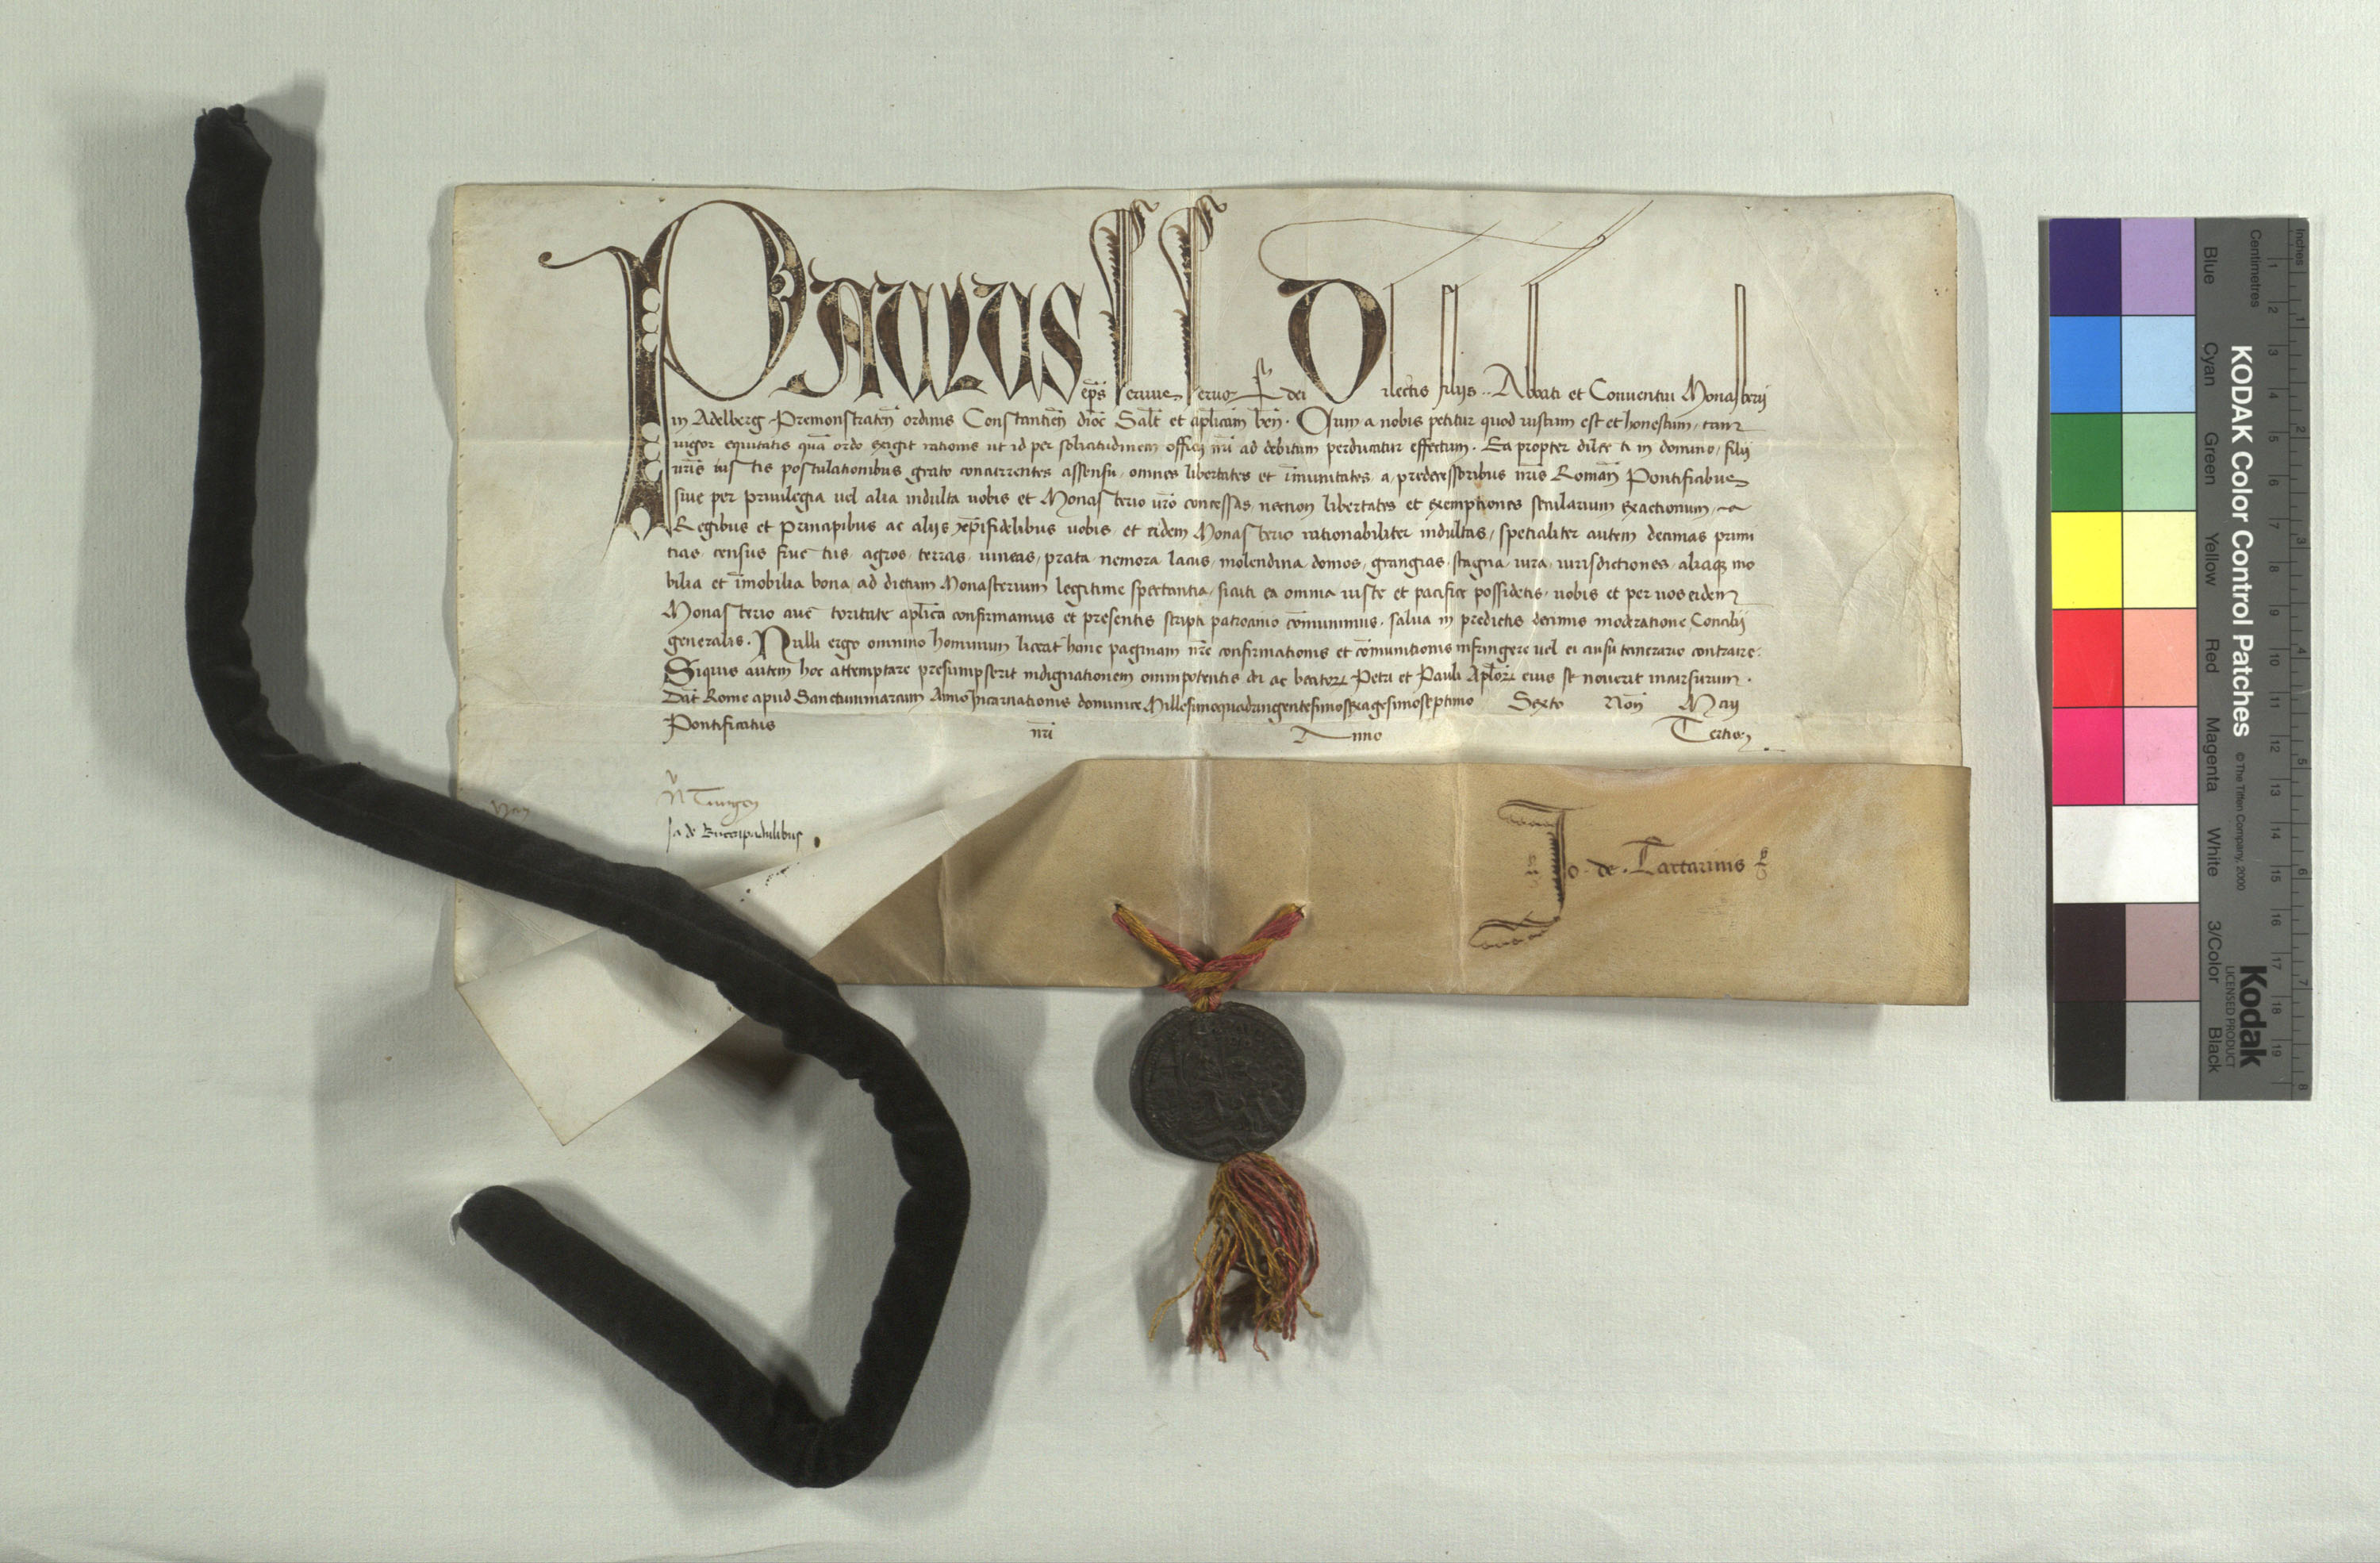 Paulus ep̄s seruus seruoꝝ dei Dilectis filijs .. Abbati et Conuentui Monasterij
in Adelberg Premonstraten̄ ordinis Constantien̄ dioc̄ Salt̄ et ap̄licam ben̄. Cum a nobis petitur quod iustum est et honestum, tam
uigor equitatis quā ordo exigit rationis ut id per solicitudinem officij nr̄i ad debitum perducatur effectum. Ea propter dilecti in domino, filij
ur̄is iustis postulationibus grato concurrentes assensu, omnes libertates et īmunitates a predecessoribus nr̄is Roman̄ Pontificibus
siue per priuilegia uel alia indulta uobis et Monasterio ur̄o concessas, necnon libertates et exemptiones secularium exactionum, a
Regibus et Principibus ac alijs xp̄ifidelibus uobis et eidem Monasterio rationabiliter indultas, spetialiter autem decimas primi
tias, census fructus, agros, terras, uineas, prata, nemora, lacus, molendina, domos, grangias, stagna, iura, iurisdictiones, aliaqꝫ mo
bilia et īmobilia bona ad dictum Monasterium legitime spectantia, sicuti ea omnia iuste et pacifice possidetis, uobis et per uos eidem
Monasterio auctoritate ap̄lica confirmamus et presentis scripti patrocinio cōmunimus, salua in predictis decimis moderatione Concilij
generalis. Nulli ergo omnino hominum liceat hanc paginam nr̄e confirmationis et cōmunitionis infringere uel ei ausu temerario contraire.
Siquis autem hoc attemptare presumpserit indignationem omnipotentis dei ac beatoꝝ Petri et Pauli Apl̄oꝝ eius se nouerit incursurum.
Dat̄ Rome apud Sanctummarcum Anno Incarnationis dominice Millesimoquadringentesimosexagesimoseptimo Sexto Non̄ Maij
Pontificatus nr̄i Anno Tertio
N Tungen
Ja de Buccapadulibus
Jo. de. Tartarinis
KODAK Color Control Patches
© The Tiffen Company, 2000
Kodak
LICENSED PRODUCT
Blue Cyan Green Yellow Red Magenta White 3/Color Black
Centimetres 1 2 3 4 5 6 7 8 9 10 11 12 13 14 15 16 17 18 19
Inches 1 2 3 4 5 6 7 8